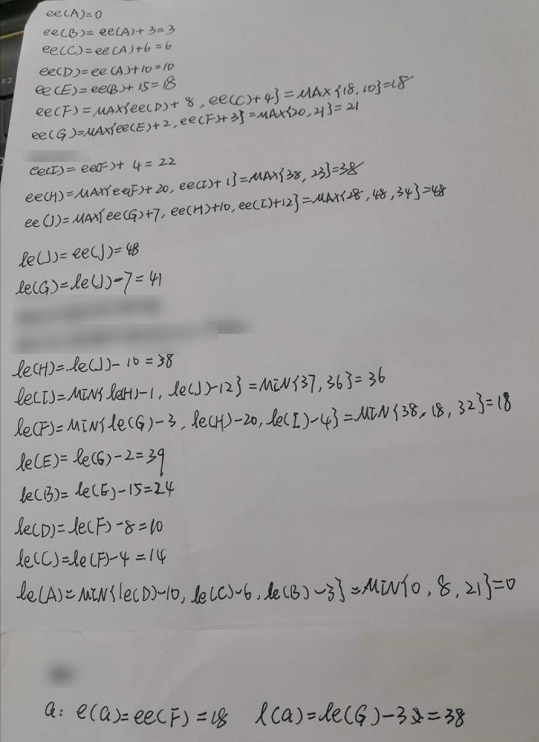 ee(A)=0
ee(B)=ee(A)+3=3
ee(C)=ee(A)+6=6
ee(D)=ee(A)+10=10
ee(E)=ee(B)+15=18
ee(F)=MAX{ee(D)+8, ee(C)+4}=MAX{18,10}=18
ee(G)=MAX{ee(E)+2, ee(F)+3}=MAX{20,21}=21
ee(I)=ee(F)+4=22
ee(H)=MAX{ee(F)+20, ee(I)+1}=MAX{38,23}=38
ee(J)=MAX{ee(G)+7, ee(H)+10, ee(I)+12}=MAX{28,48,34}=48
le(J)=ee(J)=48
le(G)=le(J)-7=41
le(H)=le(J)-10=38
le(I)=MIN{le(H)-1, le(J)-12}=MIN{37,36}=36
le(F)=MIN{le(G)-3, le(H)-20, le(I)-4}=MIN{38,18,32}=18
le(E)=le(G)-2=39
le(B)=le(E)-15=24
le(D)=le(F)-8=10
le(C)=le(F)-4=14
le(A)=MIN{le(D)-10, le(C)-6, le(B)-3}=MIN{0,8,21}=0
a: e(a)=ee(F)=18 l(a)=le(G)-3=38